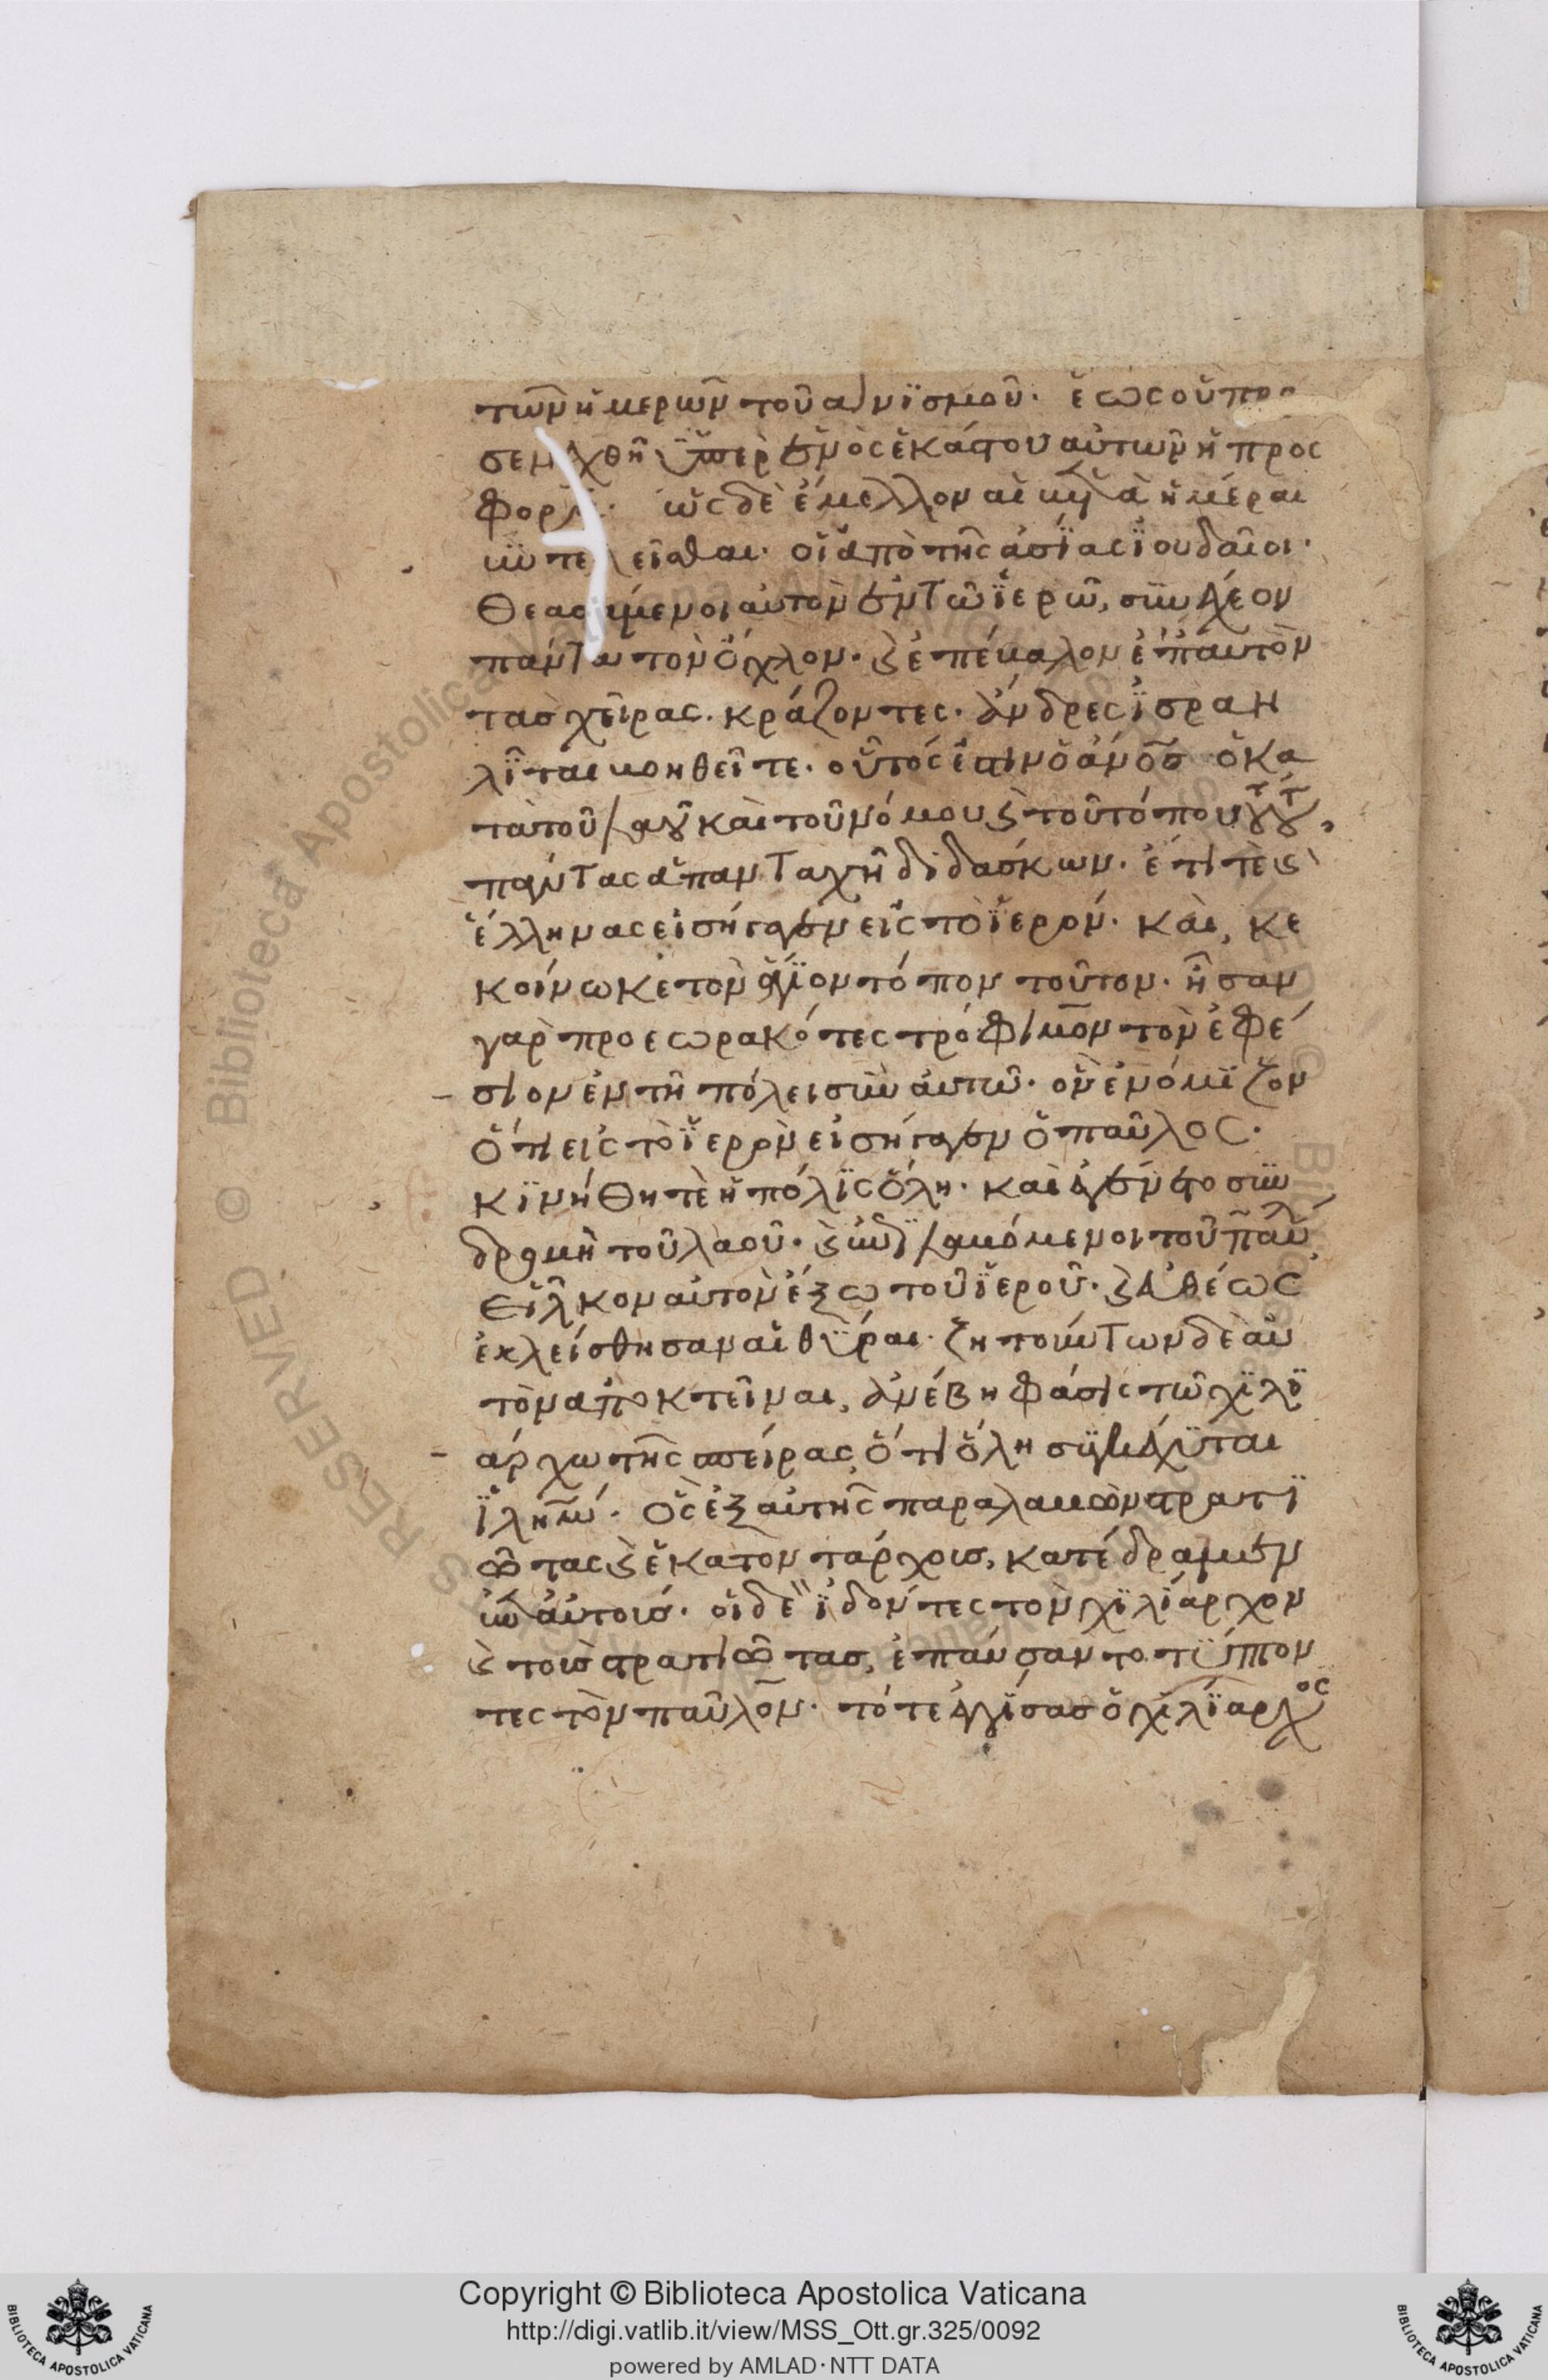 τῶν ἡμερῶν τοῦ ἁγνϊσμοῦ· ἕως οὗ προ
σενεχθῆ ὑπὲρ ἑνὸς ἑκάστου αὐτῶν ἡ προς
φορά· ὡς δὲ ἔμελλον αἱ ἡμέραι
συντελεῖσθαι· οἱ ἀπὸ τῆς ἀσΐας ϊουδαῖοι·
θεασάμενοι αὐτὸν ἐν τῶ ϊερῶ, συνέχεον
πάντα τὸν ὄχλον· ϗ ἐπέβαλον ἐπ' αὐτὸν
τὰσ χεῖρας. κράζοντες· ἄνδρες ϊσραη
λῖται βοηθεῖτε· οὗτός ἐστιν ὁ ἄνος ὁ κα
τὰ τοῦ λαοῦ καὶ τοῦ νόμου ϗ τοῦ τόπου τούτου,
πάντας ἁπανταχῆ διδασκων· ἔτι τὲ ϗ
ἕλληνας εἰσήγαγεν εἰς τὸ ϊερόν· καὶ, κε
κοίνωκε τὸν ἅγϊον τόπον τοῦτον· ἦσαν
γὰρ προεωρακότες τρόφιμον τὸν ἐφέ
σιον ἐν τῆ πόλει σὺν ἀυτῶ· ὃν ἐνόμϊζον
ὅτι εἰς τὸ ϊερὸν εἰσήγαγεν ὁ παῦλος·
κϊνήθη τὲ ἡ πόλϊς ὅλη· καὶ ἐγένετο συν
δρομὴ τοῦ λαοῦ· ϗ ἐπϊλαμόμενοι τοῦ παύλ
εἷλκον αὐτὸν ἔξω τοῦ ϊεροῦ· ϗ εὐθέως
ἐκλείσθησαν αἱ θύραι· ζητούντων δὲ αὐ
τὸν αποκτεῖναι, ἀνέβη φάσις τῶ χϊλϊ
άρχω τῆς σπείρας, ὅτι ὅλη συγκέχυται
ϊλημ· ὃς ἐξαυτῆς παραλαβὼν στρατϊ
ώτας ϗ ἑκατοντάρχους, κατέδραμεν
ἐπ' αὐτούς· οἱ δὲ ϊδόντες τὸν χϊλϊαρχον
ϗ τοὺς στρατιώτας, ἐπαύσαντο τύπτον
τες τὸν παῦλον· τότε ἐγγίσασ ὁ χϊλϊαρχος
Copyright © Biblioteca Apostolica Vaticana
http://digi.vatlib.it/view/MSS_Ott.gr.325/0092
powered by AMLAD·NTT DATA